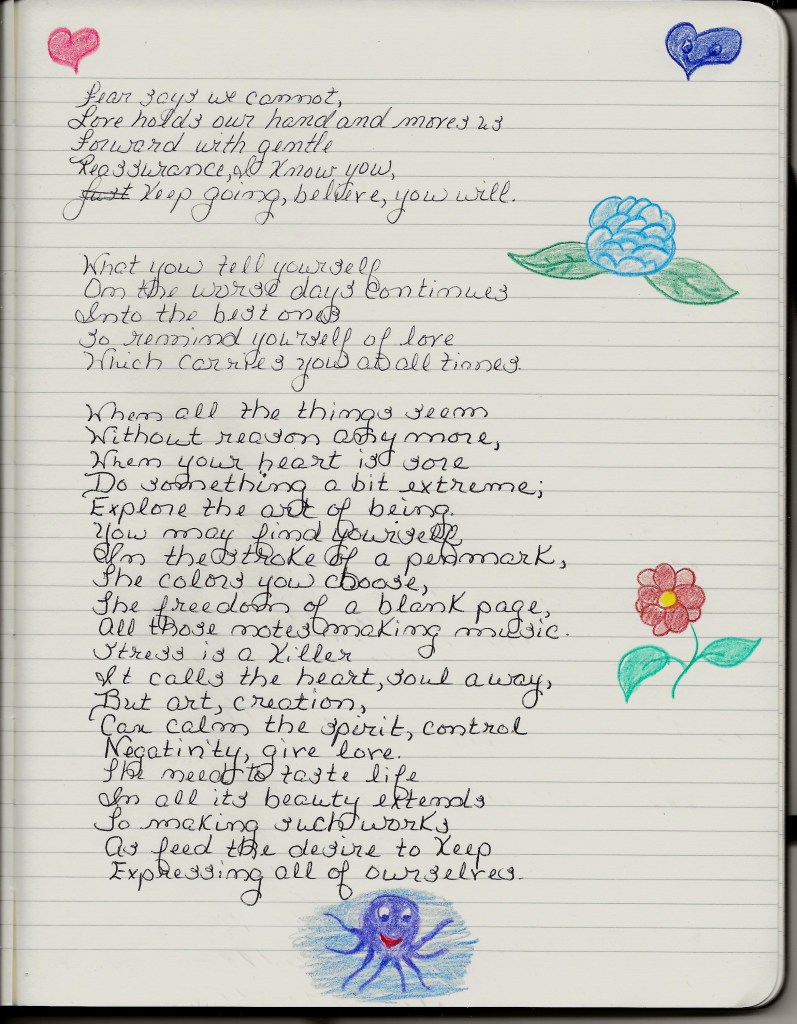 Fear says we cannot,
Love holds our hand and moves us
Forward with gentle
Reassurance, I know you,
Just Keep going, believe, you will.
What you tell yourself
On the worse days continues
Into the best ones
So remind yourself of love
Which carries you at all times.
When all the things seem
Without reason any more,
When your heart is sore
Do something a bit extreme;
Explore the art of being.
You may find yourself
In the stroke of a penmark,
The colors you choose,
The freedom of a blank page,
All those notes making music.
Stress is a killer
It calls the heart, soul away,
But art, creation,
Can calm the spirit, control
Negativity, give love.
The need to taste life
In all its beauty extends
To making such works
As feed the desire to keep
Expressing all of ourselves.